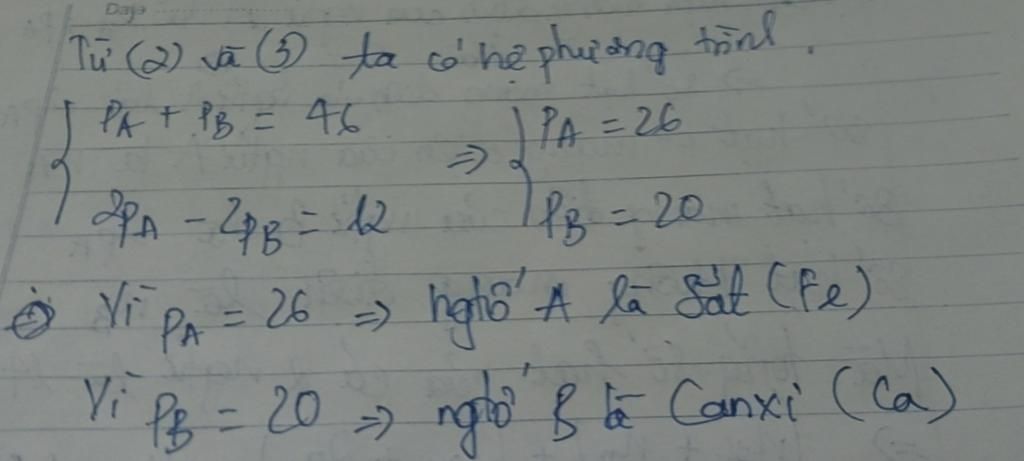 Day:
Từ (2) và (3) ta có hệ phương trình.
{ PA + PB = 46 ⇒ { PA = 26
2PA - 2PB = 12 PB = 20
Vì PA = 26 ⇒ ngtố A là Sắt (Fe)
Vì PB = 20 ⇒ ngtố B là Canxi (Ca)